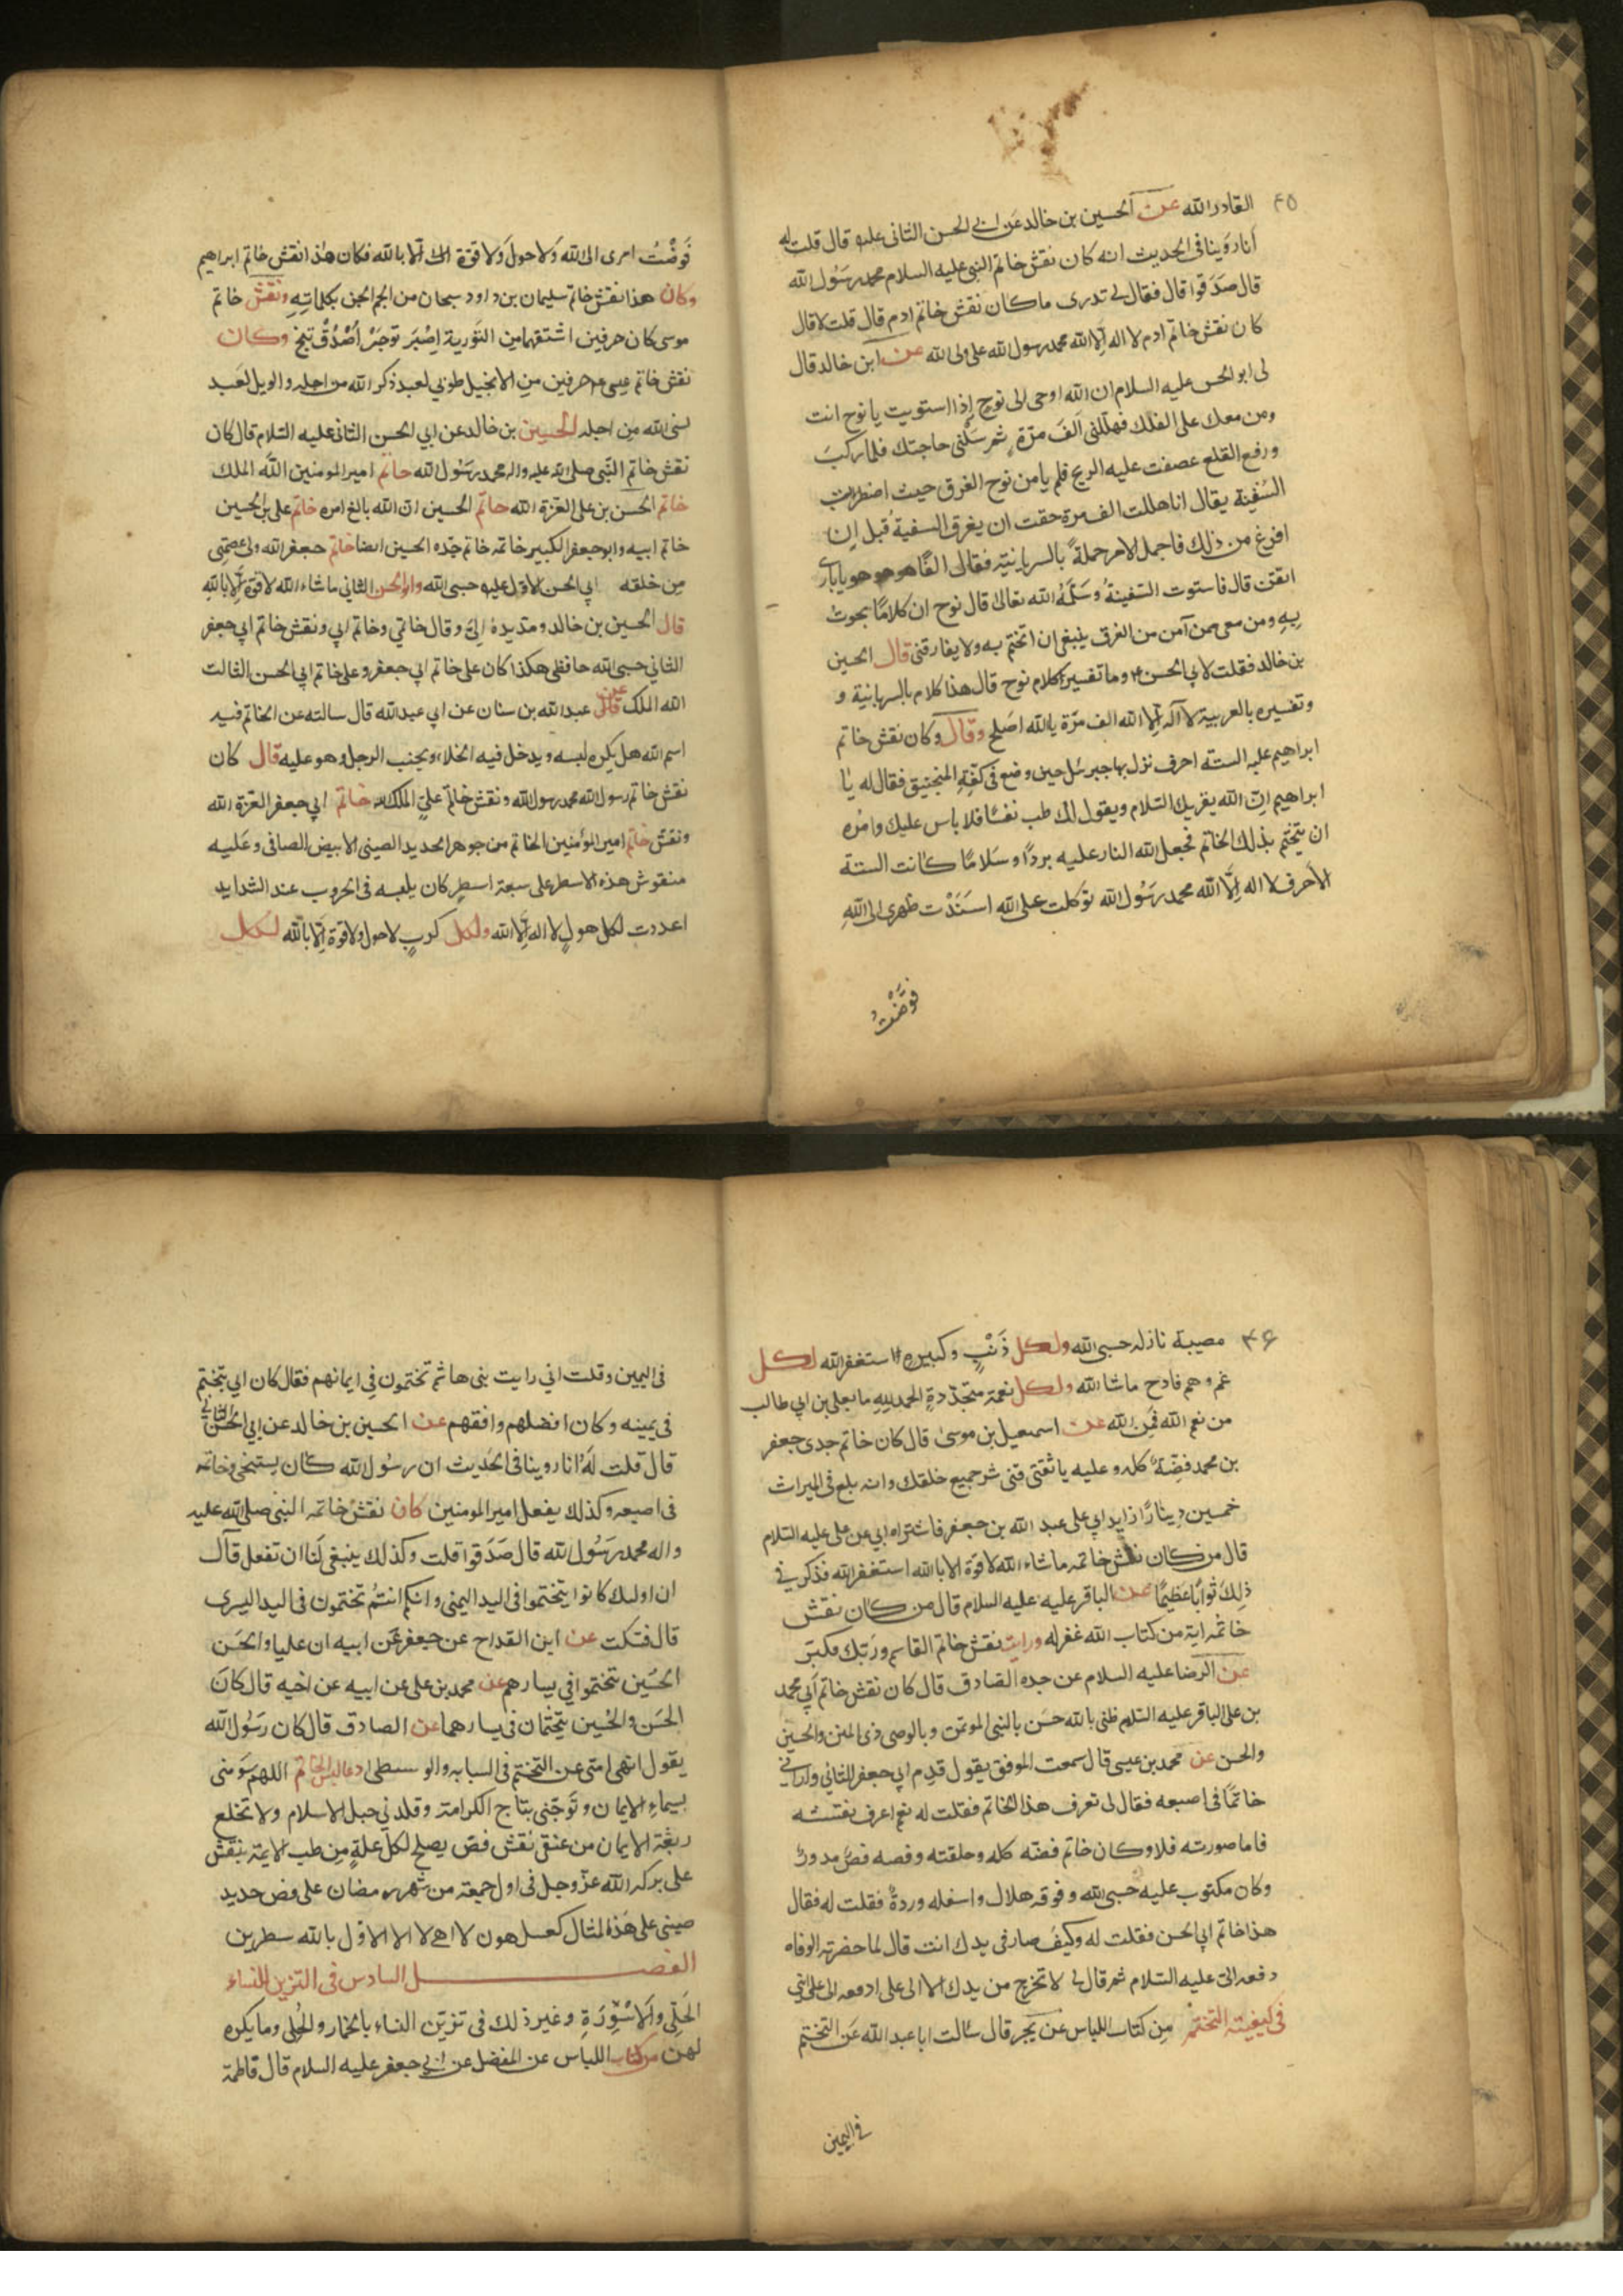 ٤٥
القادر الله عن الحسين بن خالد عن ابى الحسن الثانى عليه قال قلت له
انا روينا فى الحديث انه كان نقش خاتم النبى عليه السلام محمد رسول الله
قال صدقوا قال فقال لى تدرى ما كان نقش خاتم ادم قال قلت لا قال
كان نقش خاتم ادم لا اله الا الله محمد رسول الله على ولى الله عن ابن خالد قال
لى ابو الحسن عليه السلام ان الله اوحى الى نوح إذا استويت يا نوح انت
ومن معك على الفلك فهللنى الف مرة ثم سلنى حاجتك فلما ركب
ورفع القلع عصفت عليه الريح فلم يامن نوح الغرق حيث اضطرب
السفينة يقال انا هللت الف مرة حقت ان يغرق السفينة قبل ان
افرغ من ذلك فاجمل الامر جملة بالسريانية فقال الفا هو هو هو يا باري
اتقن قال فاستوت السفينة وسلمه الله تعالى قال نوح ان كلاما نجوت
به ومن معى ممن آمن من الغرق ينبغى ان اتختم به ولا يفارقنى قال الحسين
بن خالد فقلت لابي الحسن وما تفسير كلام نوح قال هذا كلام بالسريانية و
وتفسيره بالعربية لا اله الا الله الف مرة يا الله اصلح وقال وكان نقش خاتم
ابراهيم عليه الستة احرف نزل بها جبرئيل حين وضع فى كفة المنجنيق فقال له يا
ابراهيم ان الله يقريك السلام ويقول لك طب نفسا فلا باس عليك وامره
ان يتختم بذلك الخاتم فجعل الله النار عليه بردا وسلاما كانت الستة
الاحرف لا اله الا الله محمد رسول الله توكلت على الله اسندت ظهرى الى الله
فوضت
فوضت امرى الى الله ولا حول ولا قوة الا بالله فكان هذا نقش خاتم ابراهيم
وكان هذا نقش خاتم سليمان بن داود سبحان من الجم الجن بكلماته ونقش خاتم
موسى كان حرفين اشتقهما من التورية اصبر توجر اصدق تنج وكان
نقش خاتم عيسى حرفين من الانجيل طوبى لعبد ذكر الله من اجله والويل لعبد
نسى الله من اجله الحسين بن خالد عن ابي الحسن الثانى عليه السلام قال كان
نقش خاتم النبى صلى الله عليه واله محمد رسول الله خاتم امير المومنين الله الملك
خاتم الحسن بن على العزة لله خاتم الحسين ان الله بالغ امره خاتم على بن الحسين
خاتم ابيه وابو جعفر الكبير خاتمه خاتم جده الحسين ايضا خاتم جعفر الله ولى عصمتى
من خلقه ابي الحسن الاول عليه حسبى الله وابو الحسن الثاني ما شاء الله لا قوة الا بالله
قال الحسين بن خالد ومد يده الى وقال خاتمي وخاتم ابي ونقش خاتم ابي جعفر
الثاني حسبى الله حافظى هكذا كان على خاتم ابي جعفر وعلى خاتم ابي الحسن الثالث
الله الملك عن عبد الله بن سنان عن ابي عبد الله قال سالته عن الخاتم فيه
اسم الله هل يكره لبسه ويدخل فيه الخلاء ويجنب الرجل وهو عليه قال كان
نقش خاتم رسول الله محمد رسول الله ونقش خاتم على الملك لله خاتم ابي جعفر العزة لله
ونقش خاتم امير المؤمنين الخاتم من جوهر الحديد الصينى الابيض الصافى وعليه
منقوش هذه الاسطر على سبعة اسطر كان يلبسه فى الحروب عند الشدايد
اعددت لكل هول لا اله الا الله ولكل كرب لا حول ولا قوة الا بالله لكل
٤٦
مصيبة نازله حسبى الله ولكل ذنب وكبيره استغفر الله لكل
غم وهم فادح ماشا الله ولكل نعمة متجددة الحمد لله ما بعلى بن ابي طالب
من نعم الله فمن الله عن اسمعيل بن موسى قال كان خاتم جدى جعفر
بن محمد فضة كله وعليه يا ثقتى قنى شر جميع خلقك وانه بلغ فى الميراث
خمسين دينارا زايد ابي على عبد الله بن جعفر فاشتراه ابي عن على عليه السلام
قال من كان نقش خاتمه ماشاء الله لا قوة الا بالله استغفر الله فذكر في
ذلك ثوابا عظيما عن الباقر عليه عليه السلام قال من كان نقش
خاتمه اية من كتاب الله غفر له ورايت نقش خاتم القاسم وربك فكبر
عن الرضا عليه السلام عن جده الصادق قال كان نقش خاتم ابي محمد
بن على الباقر عليه السلم ظنى بالله حسن بالنبى الموتمن وبالوصى ذى المنن والحسين
والحسن عن محمد بن عيسى قال سمعت الموفق يقول قدم ابي جعفر الثاني واراني
خاتما فى اصبعه فقال لى تعرف هذا الخاتم فقلت له نعم اعرف نقشه
فاما صورته فلا وكان خاتم فضه كله وحلقته وفصه فص مدور
وكان مكتوب عليه حسبى الله وفوقه هلال واسفله وردة فقلت له فقال
هذا خاتم ابي الحسن فقلت له وكيف صار فى يدك انت قال لما حضرته الوفاه
دفعه الى عليه السلام ثم قال لى لا تخرج من يدك الا الى على ادفعه الى على ابنى
فى كيفيته التختم من كتاب اللباس عن بجر قال سالت ابا عبد الله عن التختم
فى اليمين
فى اليمين وقلت اني رايت بنى هاشم تختمون فى ايمانهم فقال كان ابي يتختم
فى يمينه وكان افضلهم وافقههم عن الحسين بن خالد عن ابي الحسن الثاني
قال قلت له انا روينا فى الحديث ان رسول الله كان يستنجى وخاتمه
فى اصبعه وكذلك يفعل امير المومنين كان نقش خاتمه النبى صلى الله عليه
واله محمد رسول الله قال صدقوا قلت وكذلك ينبغى لنا ان نفعل قال
ان اوليك كانوا يتختموا فى اليد اليمنى وانكم انتم تختمون فى اليد اليسرى
قال فسكت عن ابن القداح عن جعفر عن ابيه ان عليا والحسن
الحسين تختموا في يسارهم عن محمد بن على عن ابيه عن اخيه قال كان
الحسن والحسين يتختمان فى يسارهما عن الصادق قال كان رسول الله
يقول انهى امتى عن التختم فى السبابه والوسطى دعا لبس الخاتم اللهم سومنى
بسيماء الايمان وتوجنى بتاج الكرامة وقلدني حبل الاسلام ولا تخلع
ربقة الايمان من عنقى نقش فص يصلح لكل علة من طب الايمة ينقش
على بركة الله عز وجل فى اول جمعة من شهر رمضان على فص حديد
صينى على هذه المثال كعسلهون لا الا الاول بالله سطرين
الفصل السادس فى التزين للنساء
الحلى والاسورة وغير ذلك فى تزين النساء بالخمار والحلى وما يكره
لهن من كتاب اللباس عن المفضل عن ابى جعفر عليه السلام قال فاطمة